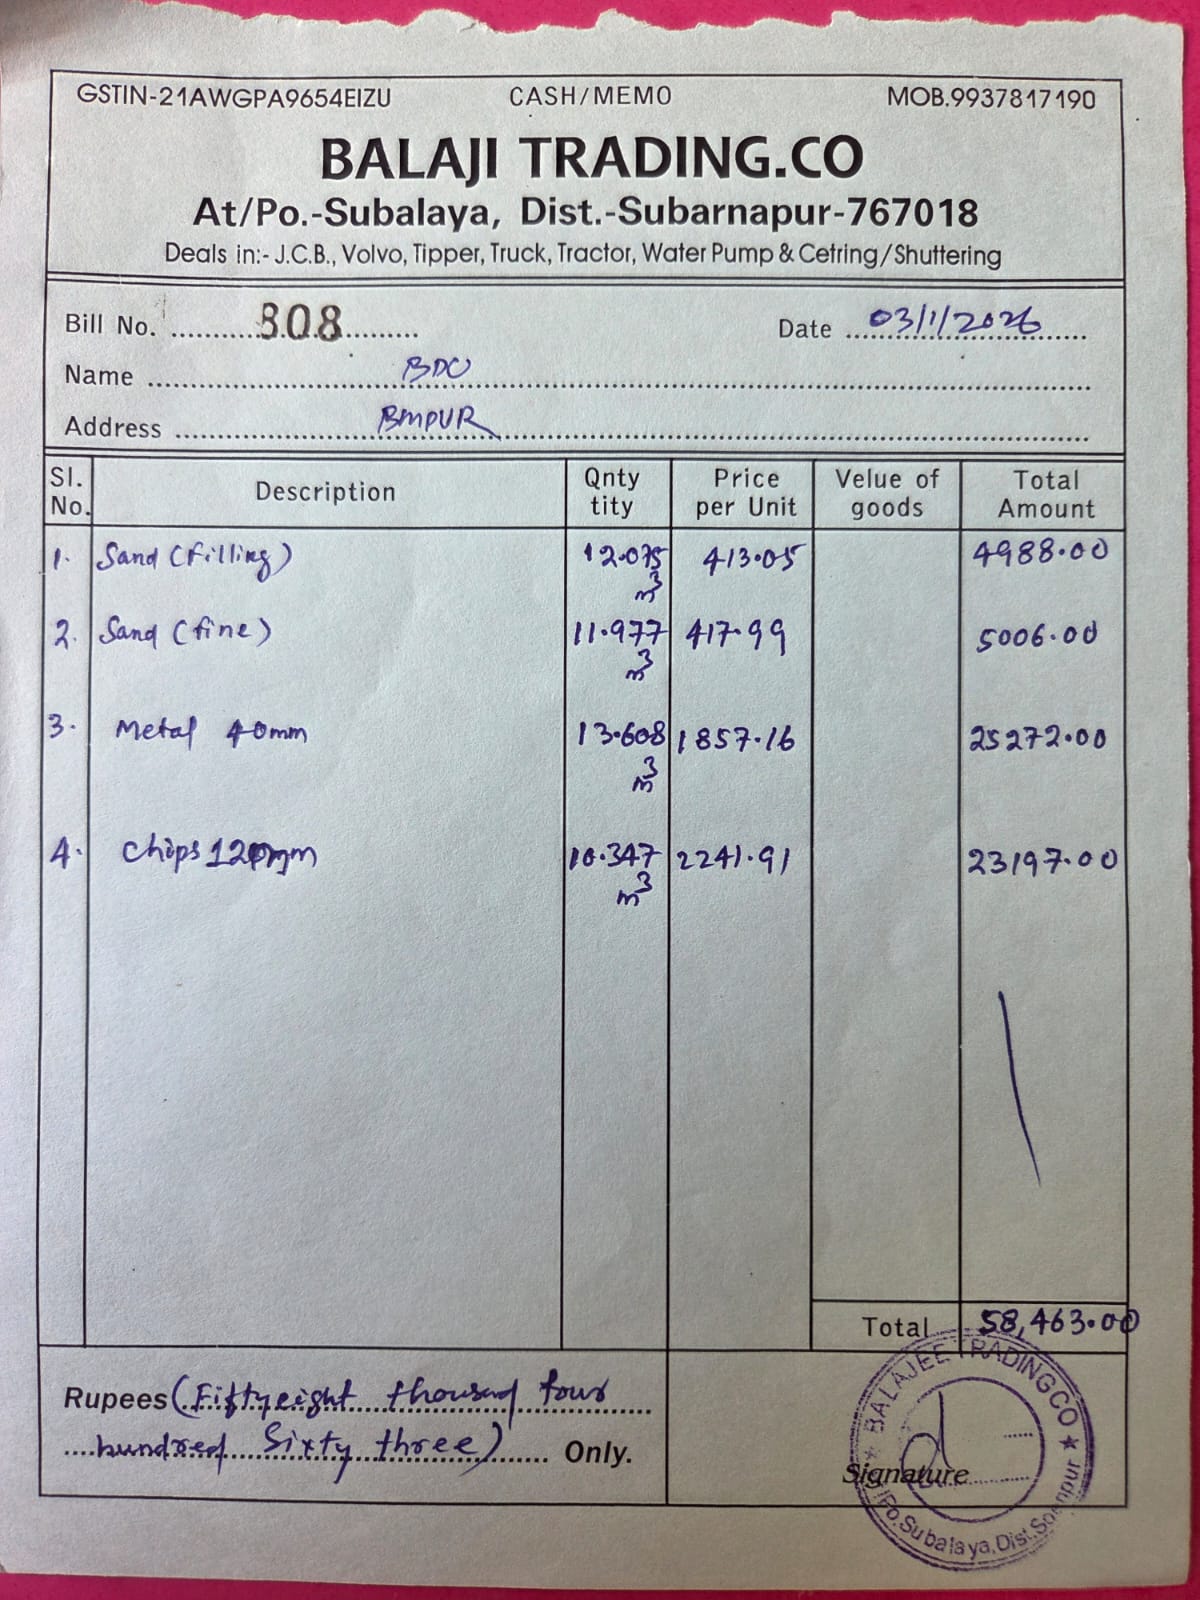 GSTIN-21AWGPA9654EIZU CASH/MEMO MOB.9937817190
BALAJI TRADING.CO
At/Po.-Subalaya, Dist.-Subarnapur-767018
Deals in:- J.C.B., Volvo, Tipper, Truck, Tractor, Water Pump & Cetring/Shuttering
Bill No. 308 Date 03/1/2026
Name BDO
Address BMPUR
Sl. No. Description Qnty tity Price per Unit Velue of goods Total Amount
1. Sand (filling) 12.075 m3 413.05 4988.00
2. Sand (fine) 11.977 m3 417.99 5006.00
3. Metal 40mm 13.608 m3 1857.16 25272.00
4. Chips 12mm 10.347 m3 2241.91 23197.00
Total 58,463.00
Rupees (Fiftyeight thousand four
hundred Sixty three) Only.
Signature
BALAJEE TRADING CO ★
Po.Subalaya, Dist.Sonepur ★